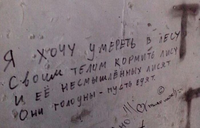 Я ХОЧУ УМЕРЕТЬ В ЛЕСУ
СВОИМ ТЕЛОМ КОРМИТЬ ЛИСУ
И ЕЁ НЕСМЫШЛЁНЫХ ЛИСЯТ
ОНИ ГОЛОДНЫ - ПУСТЬ ЕДЯТ.